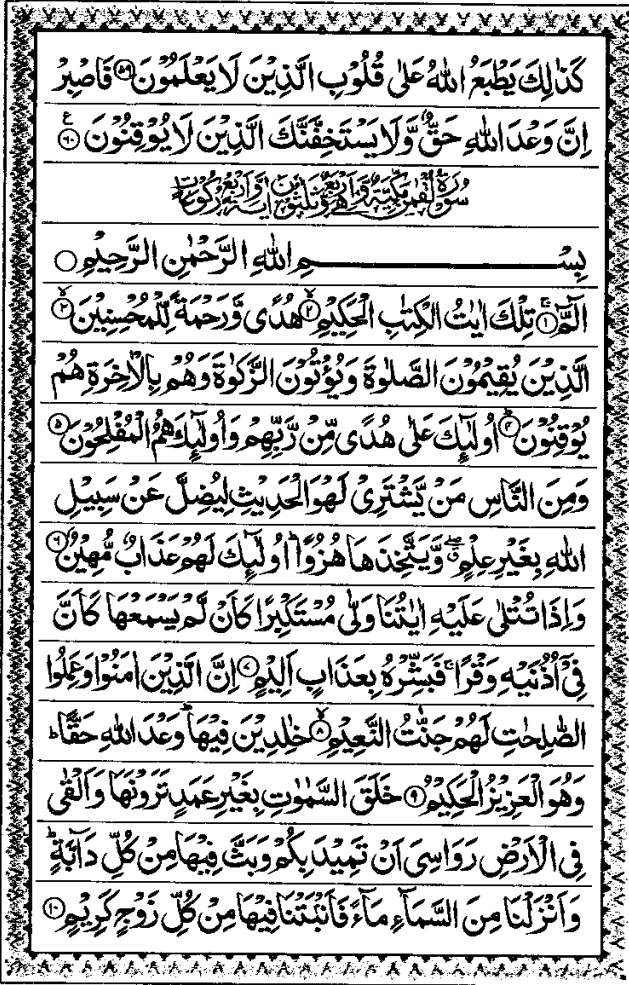 كَذٰلِكَ يَطْبَعُ اللهُ عَلٰى قُلُوْبِ الَّذِيْنَ لَا يَعْلَمُوْنَ ۝۵۹ فَاصْبِرْ
اِنَّ وَعْدَ اللهِ حَقٌّ وَّلَا يَسْتَخِفَّنَّكَ الَّذِيْنَ لَا يُوْقِنُوْنَ ۝۶۰ ع
سُوْرَةُ لُقْمٰنَ مَكِّيَّةٌ وَّهِيَ اَرْبَعٌ وَّثَلٰثُوْنَ اٰيَةً وَّاَرْبَعُ رُكُوْعَاتٍ
بِسْمِ اللهِ الرَّحْمٰنِ الرَّحِيْمِ ○
الٓمّٓ ۝۱ تِلْكَ اٰيٰتُ الْكِتٰبِ الْحَكِيْمِ ۝۲ هُدًى وَّرَحْمَةً لِّلْمُحْسِنِيْنَ ۝۳
الَّذِيْنَ يُقِيْمُوْنَ الصَّلٰوةَ وَيُؤْتُوْنَ الزَّكٰوةَ وَهُمْ بِالْاٰخِرَةِ هُمْ
يُوْقِنُوْنَ ۝۴ اُولٰٓئِكَ عَلٰى هُدًى مِّنْ رَّبِّهِمْ وَاُولٰٓئِكَ هُمُ الْمُفْلِحُوْنَ ۝۵
وَمِنَ النَّاسِ مَنْ يَّشْتَرِيْ لَهْوَ الْحَدِيْثِ لِيُضِلَّ عَنْ سَبِيْلِ
اللهِ بِغَيْرِ عِلْمٍ ۖ وَّيَتَّخِذَهَا هُزُوًا ؕ اُولٰٓئِكَ لَهُمْ عَذَابٌ مُّهِيْنٌ ۝۶
وَاِذَا تُتْلٰى عَلَيْهِ اٰيٰتُنَا وَلّٰى مُسْتَكْبِرًا كَاَنْ لَّمْ يَسْمَعْهَا كَاَنَّ
فِيْٓ اُذُنَيْهِ وَقْرًا ۚ فَبَشِّرْهُ بِعَذَابٍ اَلِيْمٍ ۝۷ اِنَّ الَّذِيْنَ اٰمَنُوْا وَعَمِلُوا
الصّٰلِحٰتِ لَهُمْ جَنّٰتُ النَّعِيْمِ ۝۸ خٰلِدِيْنَ فِيْهَا ؕ وَعْدَ اللهِ حَقًّا ؕ
وَهُوَ الْعَزِيْزُ الْحَكِيْمُ ۝۹ خَلَقَ السَّمٰوٰتِ بِغَيْرِ عَمَدٍ تَرَوْنَهَا وَاَلْقٰى
فِي الْاَرْضِ رَوَاسِيَ اَنْ تَمِيْدَ بِكُمْ وَبَثَّ فِيْهَا مِنْ كُلِّ دَآبَّةٍ ؕ
وَاَنْزَلْنَا مِنَ السَّمَآءِ مَآءً فَاَنْۢبَتْنَا فِيْهَا مِنْ كُلِّ زَوْجٍ كَرِيْمٍ ۝۱۰